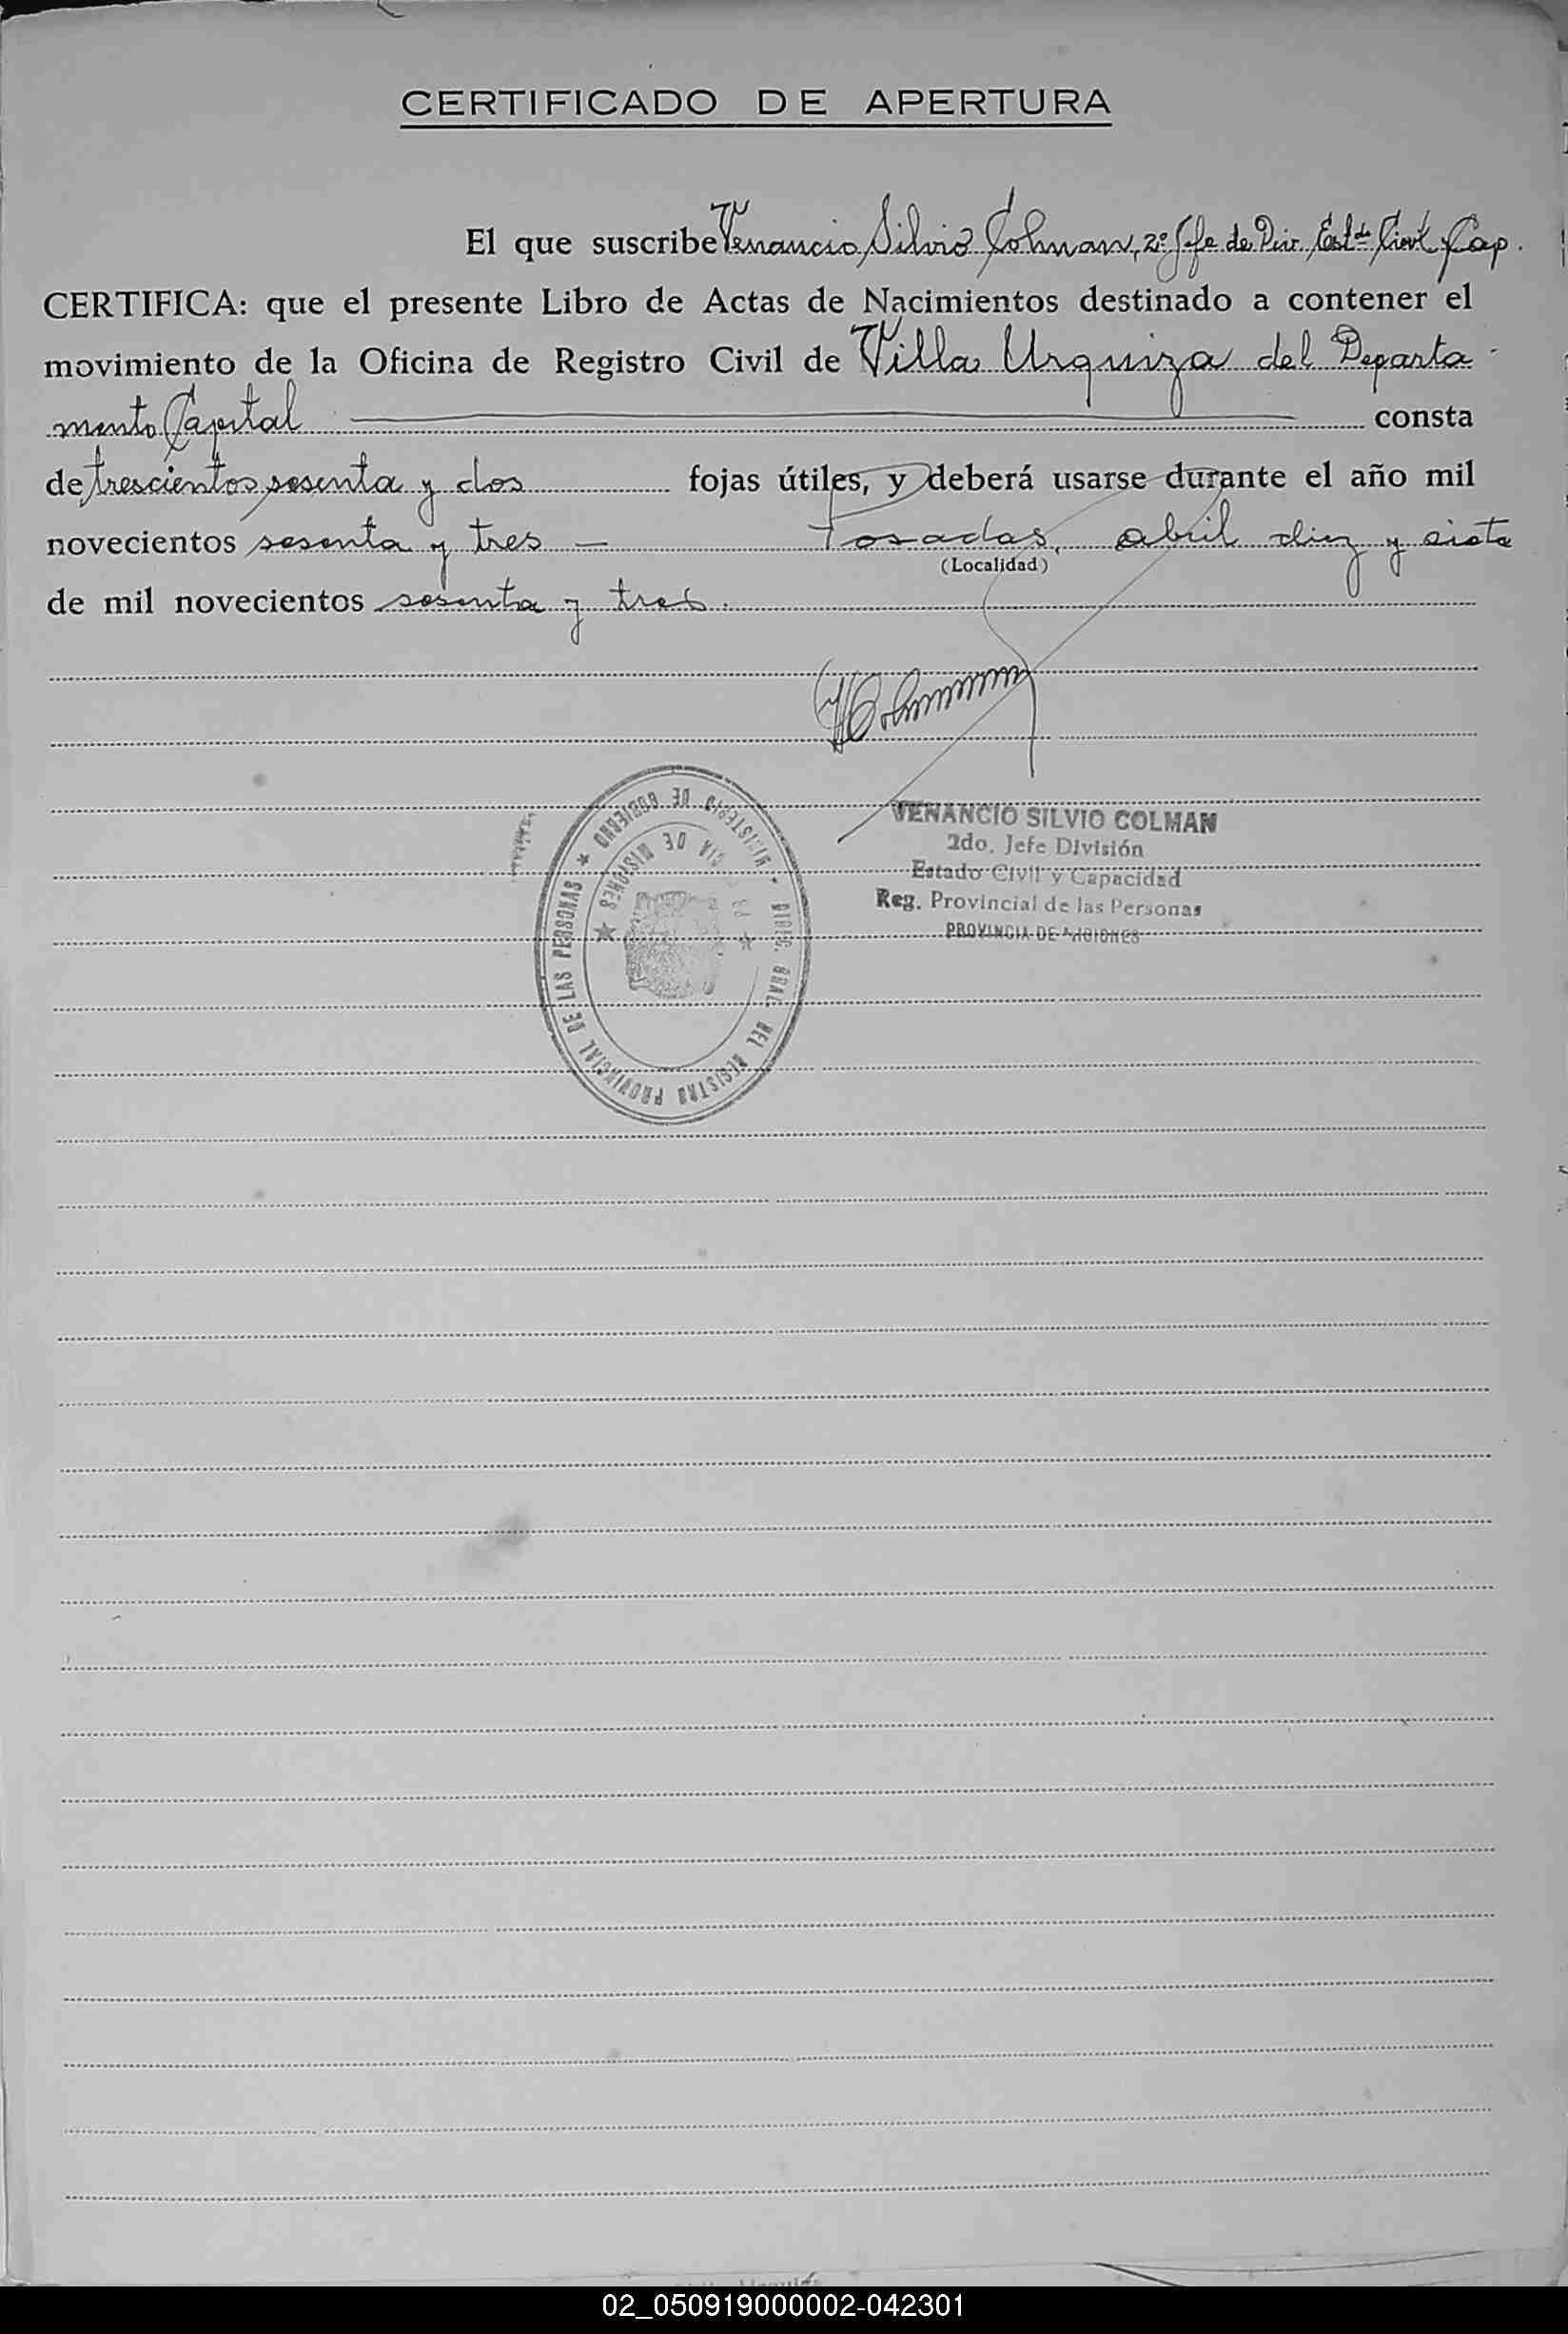 CERTIFICADO DE APERTURA
El que suscribe Venancio Silvio Colman, 2º Jefe de Div. Est.do Civil y Cap.
CERTIFICA: que el presente Libro de Actas de Nacimientos destinado a contener el
movimiento de la Oficina de Registro Civil de Villa Urquiza del Departa-
mento Capital consta
de trescientos sesenta y dos fojas útiles, y deberá usarse durante el año mil
novecientos sesenta y tres — Posadas, abril diez y siete
(Localidad)
de mil novecientos sesenta y tres.
VENANCIO SILVIO COLMAN
2do. Jefe División
Estado Civil y Capacidad
Reg. Provincial de las Personas
PROVINCIA DE MISIONES
MINISTERIO DE GOBIERNO ★ DIREC. GRAL. DEL REGISTRO PROVINCIAL DE LAS PERSONAS ★
DE MISIONES ★
02_050919000002-042301